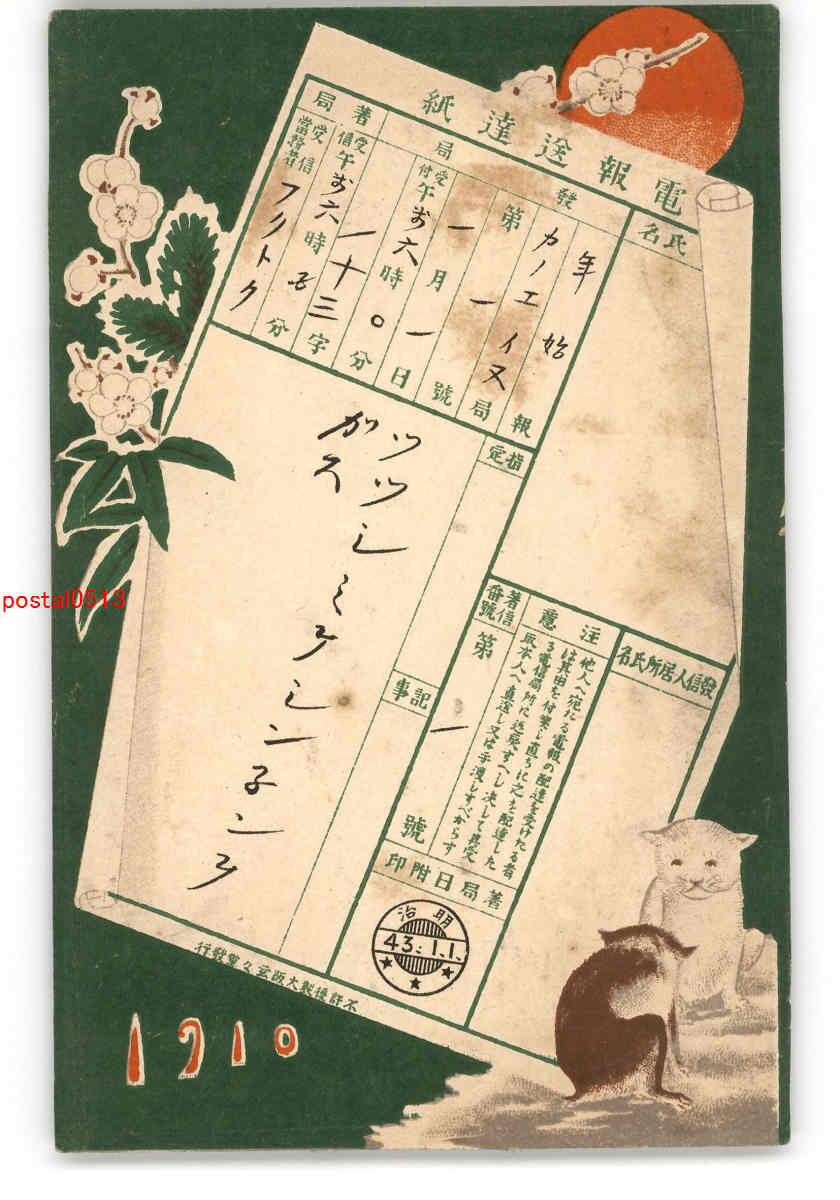 電報送達紙
氏名
發
局
年始報
カノエイヌ局
第一號
一月一日
受付午前六時〇分
著局
受信午前六時五分
一十三字
受信當務者
フクトク
指定
ツツシミテシンネンヲ
ガス
記事
著信番號
第一號
注意
他人へ宛たる電報の配達を受けたる者
は其由を付箋し直ちに之を配達した
る電信局所に返戻すへし決して再受
取本人へ直送し又は手渡しすべからず
發信人居所氏名
著局日附印
明治
43.1.1.
不許複製大阪
發行
1910
postal0513